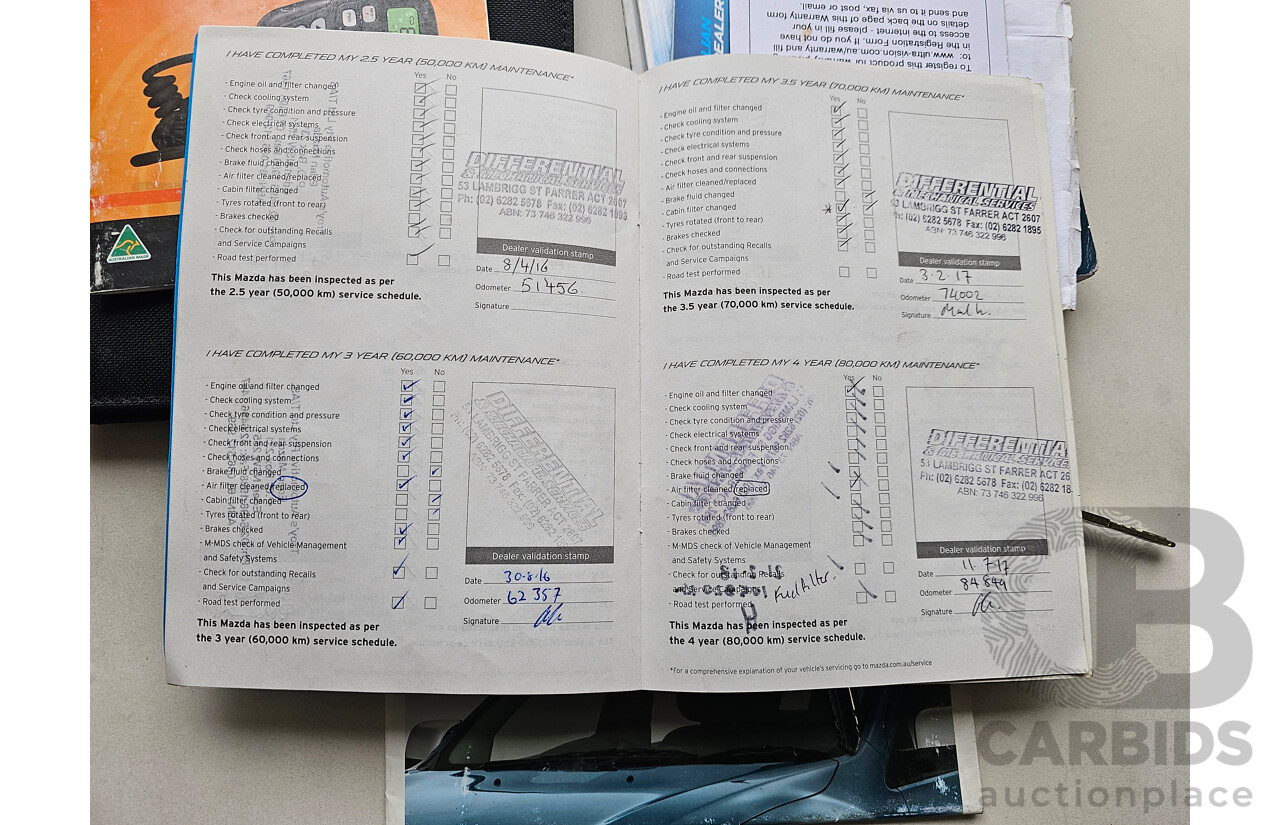 I HAVE COMPLETED MY 2.5 YEAR (50,000 KM) MAINTENANCE*
Yes No
- Engine oil and filter changed
- Check cooling system
- Check tyre condition and pressure
- Check electrical systems
- Check front and rear suspension
- Check hoses and connections
- Brake fluid changed
- Air filter cleaned/replaced
- Cabin filter changed
- Tyres rotated (front to rear)
- Brakes checked
- Check for outstanding Recalls
and Service Campaigns
- Road test performed
This Mazda has been inspected as per
the 2.5 year (50,000 km) service schedule.
DIFFERENTIAL
& MECHANICAL SERVICES
53 LAMBRIGG ST FARRER ACT 2607
Ph: (02) 6282 5678 Fax: (02) 6282 1895
ABN: 73 746 322 996
Dealer validation stamp
Date 8/4/16
Odometer 51456
Signature
I HAVE COMPLETED MY 3 YEAR (60,000 KM) MAINTENANCE*
Yes No
- Engine oil and filter changed
- Check cooling system
- Check tyre condition and pressure
- Check electrical systems
- Check front and rear suspension
- Check hoses and connections
- Brake fluid changed
- Air filter cleaned/replaced
- Cabin filter changed
- Tyres rotated (front to rear)
- Brakes checked
- M-MDS check of Vehicle Management
and Safety Systems
- Check for outstanding Recalls
and Service Campaigns
- Road test performed
This Mazda has been inspected as per
the 3 year (60,000 km) service schedule.
DIFFERENTIAL
Dealer validation stamp
Date 30-8-16
Odometer 62357
Signature
I HAVE COMPLETED MY 3.5 YEAR (70,000 KM) MAINTENANCE*
Yes No
- Engine oil and filter changed
- Check cooling system
- Check tyre condition and pressure
- Check electrical systems
- Check front and rear suspension
- Check hoses and connections
- Air filter cleaned/replaced
- Brake fluid changed
- Cabin filter changed
- Tyres rotated (front to rear)
- Brakes checked
- Check for outstanding Recalls
and Service Campaigns
- Road test performed
This Mazda has been inspected as per
the 3.5 year (70,000 km) service schedule.
DIFFERENTIAL
& MECHANICAL SERVICES
53 LAMBRIGG ST FARRER ACT 2607
Ph: (02) 6282 5678 Fax: (02) 6282 1895
ABN: 73 746 322 996
Dealer validation stamp
Date 3-2-17
Odometer 74002
Signature
I HAVE COMPLETED MY 4 YEAR (80,000 KM) MAINTENANCE*
Yes No
- Engine oil and filter changed
- Check cooling system
- Check tyre condition and pressure
- Check electrical systems
- Check front and rear suspension
- Check hoses and connections
- Brake fluid changed
- Air filter cleaned/replaced
- Cabin filter changed
- Tyres rotated (front to rear)
- Brakes checked
- M-MDS check of Vehicle Management
and Safety Systems
- Check for outstanding Recalls
and Service Campaigns
Fuel Filter
- Road test performed
This Mazda has been inspected as per
the 4 year (80,000 km) service schedule.
DIFFERENTIA
& MECHANICAL SERVICES
53 LAMBRIGG ST FARRER ACT 26
Ph: (02) 6282 5678 Fax: (02) 6282 18
ABN: 73 746 322 996
Dealer validation stamp
Date 11-7-17
Odometer 84849
Signature
*For a comprehensive explanation of your vehicle's servicing go to mazda.com.au/service
To register this product for warranty
to: www.ultra-vision.com.au/warranty and fill
in the Registration Form. If you do not have
access to the internet - please fill in your
details on the back page of this Warranty form
and send it to us via fax, post or email.
DEALER
AUSTRALIAN MADE
CARBIDS
auctionplace